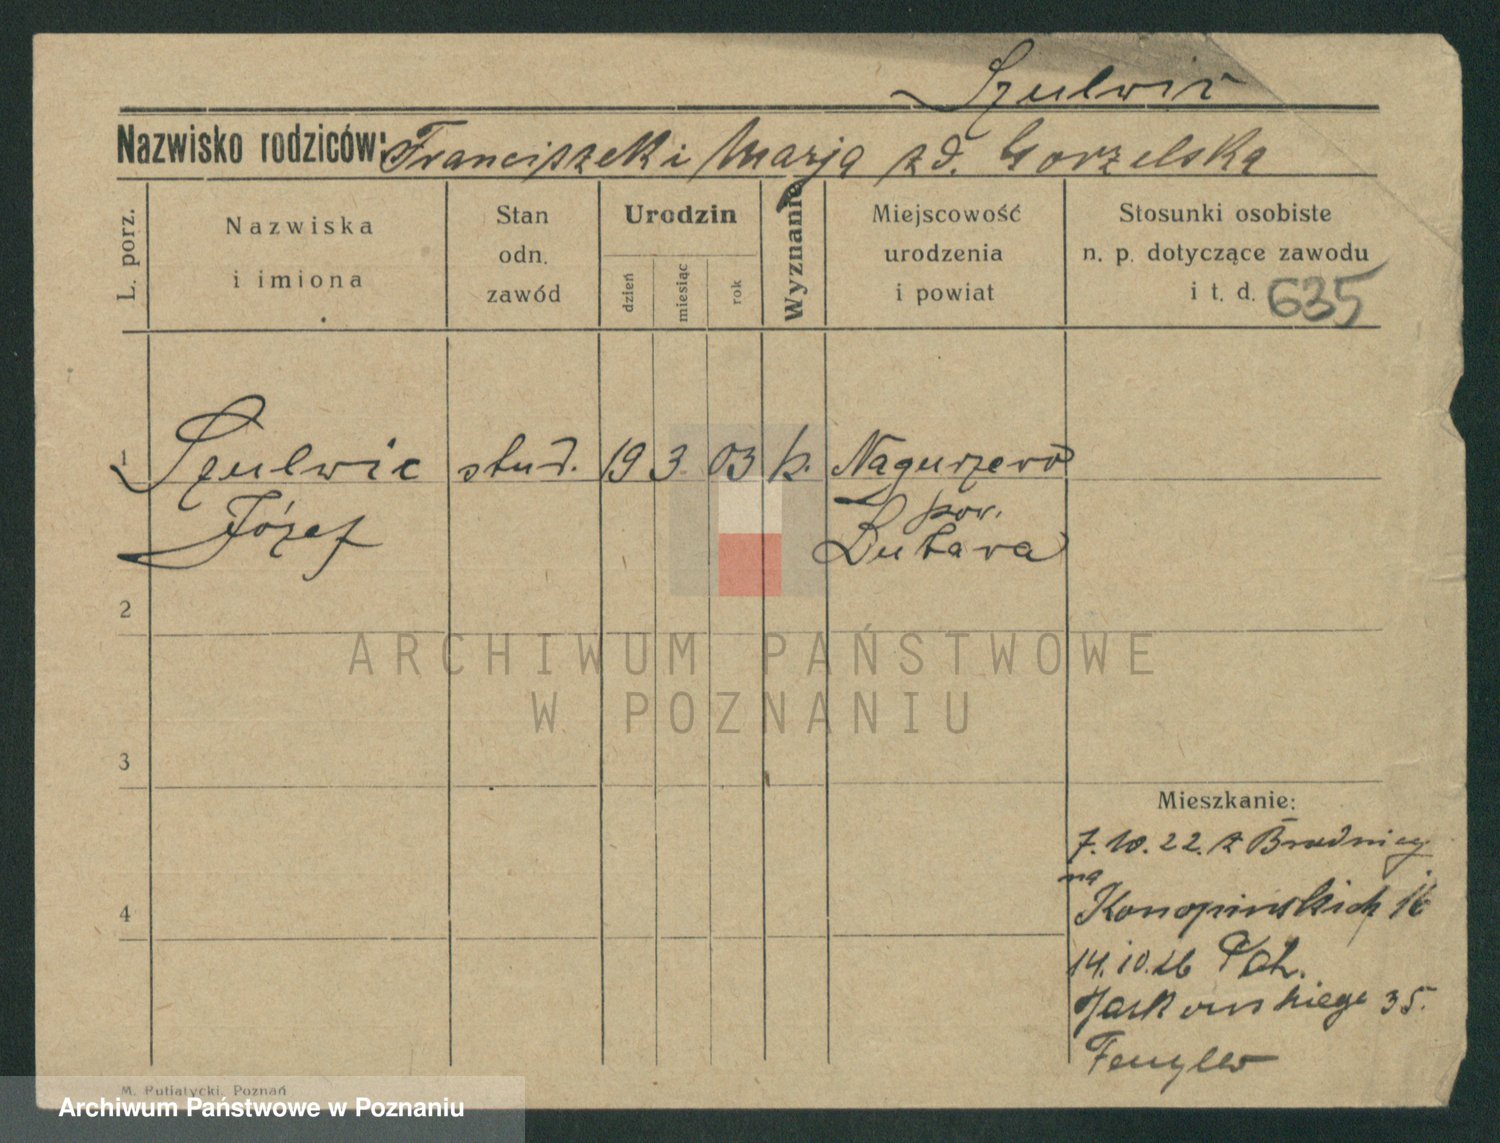 Szulwic
Nazwisko rodziców: Franciszek i Marja zd. Gorzelska
L. porz.
Nazwiska
i imiona
Stan
odn.
zawód
Urodzin
dzień
miesiąc
rok
Wyznanie
Miejscowość
urodzenia
i powiat
Stosunki osobiste
n. p. dotyczące zawodu
i t. d. 635
1 Szulwic stud. 19 3. 03 k.
Józef
pow.
2
ARCHIWUM PAŃSTWOWE
W POZNANIU
3
Mieszkanie:
7. 10. 22. z
na
Konopińskich 16
4
14. 10. 26
35.
M. Putiatycki, Poznań
Archiwum Państwowe w Poznaniu